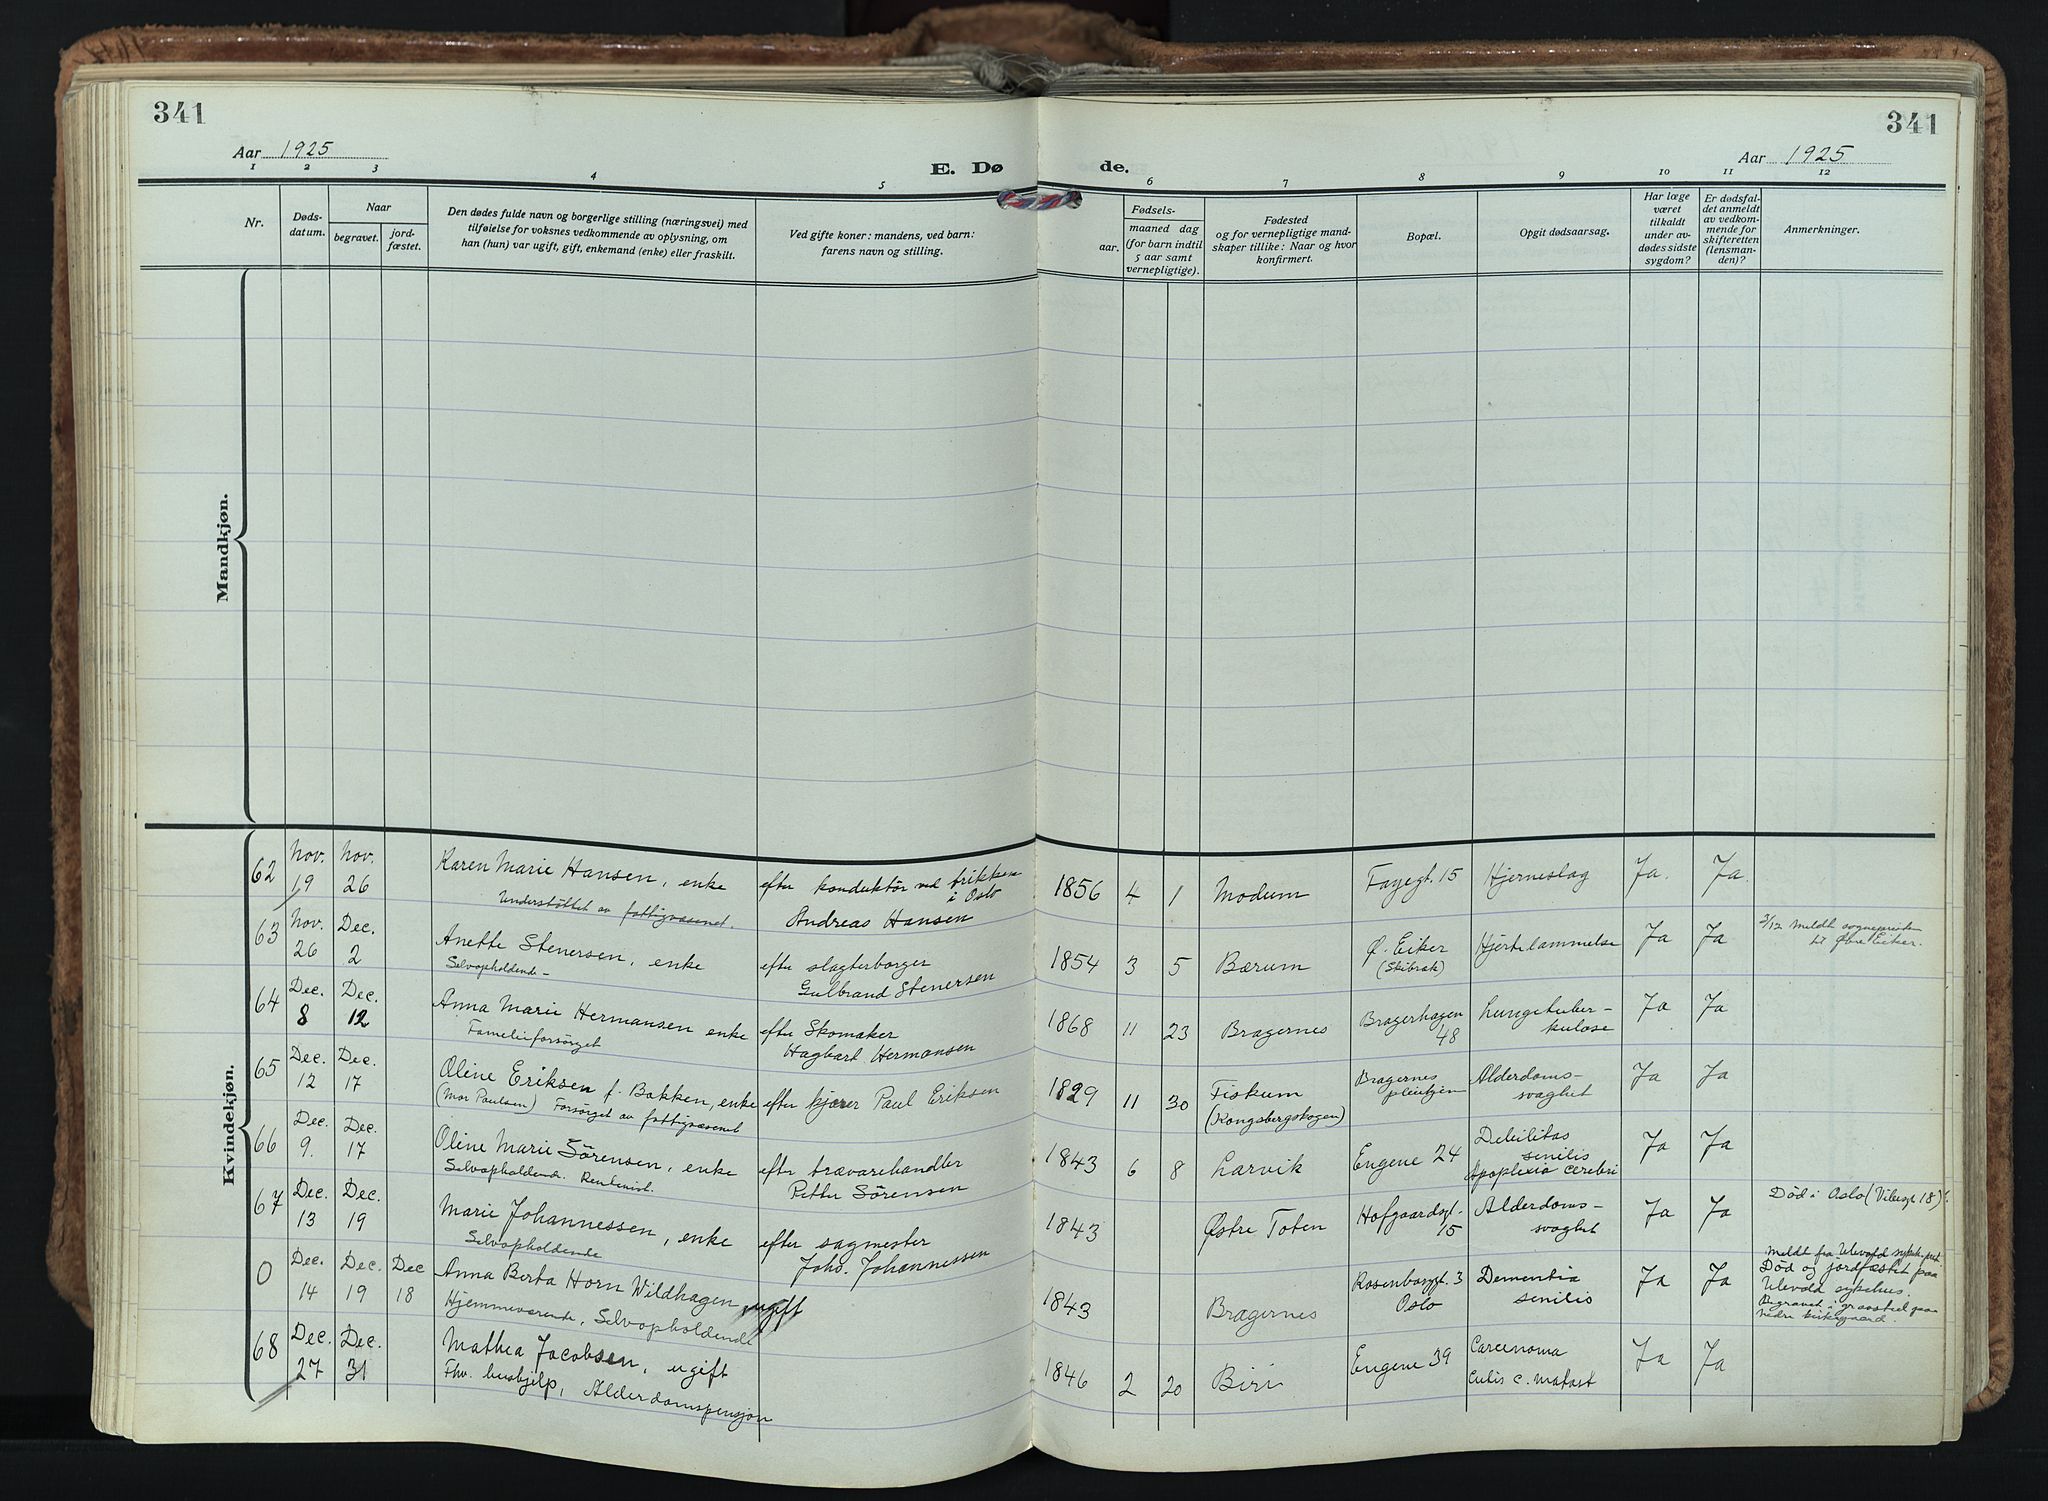 341
341
Aar 1925
E. Dø
de.
Aar 1925
1 2 3 4 5 6 7 8 9 10 11 12
Nr.
Døds-
datum.
Naar
begravet.
jord-
fæstet.
Den dødes fulde navn og borgerlige stilling (næringsvei) med
tilføielse for voksnes vedkommende av oplysning, om
han (hun) var ugift, gift, enkemand (enke) eller fraskilt.
Ved gifte koner: mandens, ved barn:
farens navn og stilling.
Fødsels-
aar.
maaned dag
(for barn indtil
5 aar samt
vernepligtige).
Fødested
og for vernepligtige mand-
skaper tillike: Naar og hvor
konfirmert.
Bopæl.
Opgit dødsaarsag.
Har læge
været
tilkaldt
under av-
dødes sidste
sygdom?
Er dødsfal-
det anmeldt
av vedkom-
mende for
skifteretten
(lensman-
den)?
Anmerkninger.
Mandkjøn.
Kvindekjøn.
62 Nov. 19 Nov. 26 Karen Marie Hansen, enke efter konduktör ved trikken i Oslo 1856 4 1 Modum Fayegt. 15 Hjerneslag Ja. Ja.
Understöttet av fattigvæsenet. Andreas Hansen
63 Nov. 26 Dec. 2 Anette Stenersen, enke efter slagterborger 1854 3 5 Bærum Ø. Eiker Hjertelammelse Ja Ja 3/12 meldt sognepresten
Selvopholdende - Gulbrand Stenersen (Skibrak) til Øvre Eiker.
64 Dec. 8 Dec. 12 Anna Marie Hermansen enke efter Skomaker 1868 11 23 Bragernes Bragerhagen 48 Lungetuber-
kulose Ja Ja
Familieforsörget Hagbart Hermansen
65 Dec. 12 Dec. 17 Oline Eriksen f. Bakken, enke efter kjører Paul Eriksen 1829 11 30 Fiskum Bragernes Alderdoms- Ja Ja
(Mor Paulsen) Forsörget av fattigvæsenet (Kongsbergskogen) pleiehjem svaghet
66 Dec. 9. Dec. 17 Oline Marie Sörensen, enke efter trævarehandler 1843 6 8 Larvik Engene 24 Debilitas senilis Ja Ja
Selvopholdende. Rentenist. Petter Sörensen Apoplexia cerebri
67 Dec. 13 Dec. 19 Marie Johannessen, enke efter sagmester 1843 Østre Toten Hofgaardsgt. 15 Alderdoms-
svaghet Ja Ja Död i Oslo
Selvopholdende Johs. Johannessen
0 Dec. 14 Dec. 19 Dec 18 Anna Berta Horn Wildhagen, ugift 1843 Bragernes Rosenborggt. 3 Dementia Ja Ja Meldt fra Ulevold
Hjemmeværende, Selvopholdende Oslo senilis Död og jordfæstet paa
Ulevold sykehus.
Begravet i gravsted paa
nedre kirkegaard.
68 Dec. 27 Dec. 31 Mathea Jacobsen, ugift 1846 2 20 Biri Engene 39 Carcinoma Ja Ja
Fhv. hushjelp, Alderdomspensjon cutis c. metast